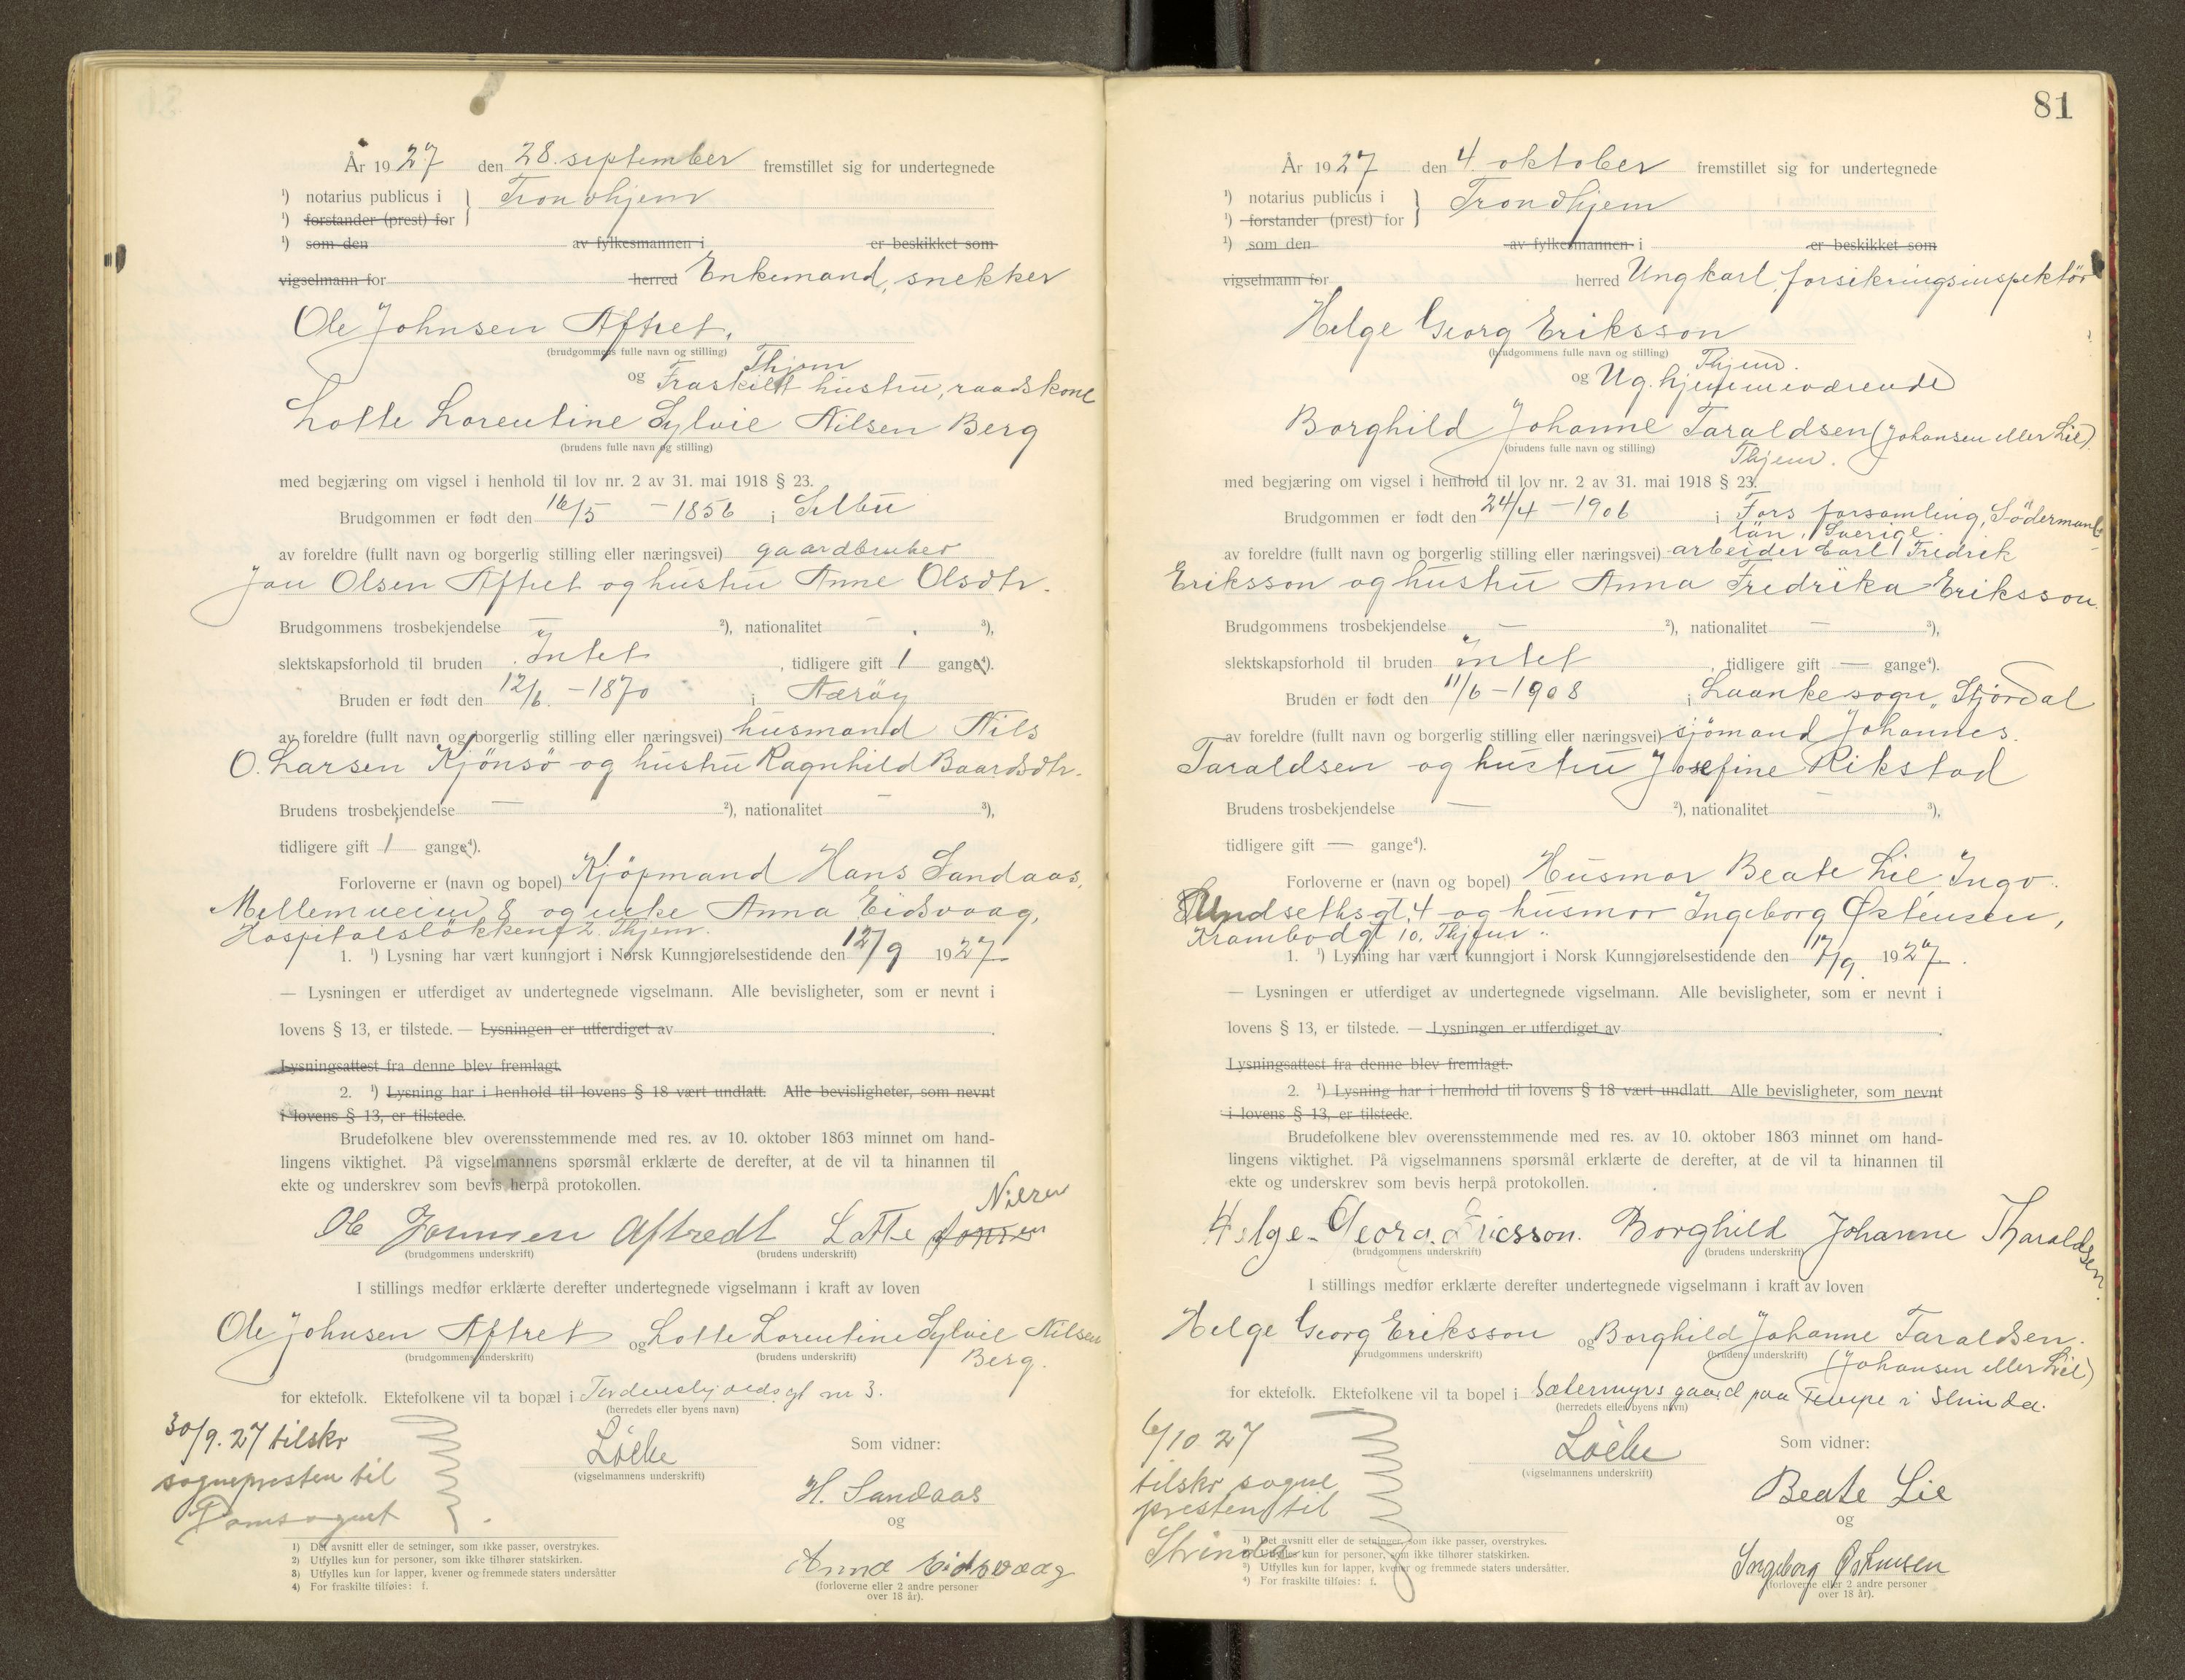 År 1927 den 28. september fremstillet sig for undertegnede
¹) notarius publicus i } Trondhjem
¹) forstander (prest) for
¹) som den av fylkesmannen i er beskikket som
vigselmann for herred Enkemand, snekker
Ole Johnsen Aftret,
(brudgommens fulle navn og stilling) Thjem
og Fraskilt hustru, raadskone
Lotte Lorentine Sylvie Nilsen Berg
(brudens fulle navn og stilling)
med begjæring om vigsel i henhold til lov nr. 2 av 31. mai 1918 § 23.
Brudgommen er født den 16/5 - 1856 i Selbu
av foreldre (fullt navn og borgerlig stilling eller næringsvei) gaardbruker
Jon Olsen Aftret og hustru Anne Olsdtr.
Brudgommens trosbekjendelse — ²), nationalitet — ³),
slektskapsforhold til bruden Intet, tidligere gift 1 gange⁴).
Bruden er født den 12/6. - 1870 i Nærøy
av foreldre (fullt navn og borgerlig stilling eller næringsvei) husmand Nils
O. Larsen Kjönsö og hustru Ragnhild Baardsdtr.
Brudens trosbekjendelse — ²), nationalitet — ³),
tidligere gift 1 gange⁴).
Forloverne er (navn og bopel) Kjöpmand Hans Sandaas,
Mellemveien 8 og enke Anna Eidsvaag,
Hospitalslökken 2. Thjem.
1. ¹) Lysning har vært kunngjort i Norsk Kunngjørelsestidende den 12/9 1927
— Lysningen er utferdiget av undertegnede vigselmann. Alle bevisligheter, som er nevnt i
lovens § 13, er tilstede. — Lysningen er utferdiget av .
Lysningsattest fra denne blev fremlagt.
2. ¹) Lysning har i henhold til lovens § 18 vært undlatt. Alle bevisligheter, som nevnt
i lovens § 13, er tilstede.
Brudefolkene blev overensstemmende med res. av 10. oktober 1863 minnet om hand-
lingens viktighet. På vigselmannens spørsmål erklærte de derefter, at de vil ta hinannen til
ekte og underskrev som bevis herpå protokollen.
Nilsen
Ole Aftredt Lotte
(brudgommens underskrift) (brudens underskrift)
I stillings medfør erklærte derefter undertegnede vigselmann i kraft av loven
Ole Johnsen Aftret og Lotte Lorentine Sylvie Nilsen
(brudgommens underskrift) (brudens underskrift) Berg.
for ektefolk. Ektefolkene vil ta bopæl i Tordenskjoldsgt nr 3.
(herredets eller byens navn)
30/9. 27 tilskr
sognepresten til
Domsognet
(vigselmannens underskrift)
Som vidner:
H. Sandaas
og
Anna Eidsvaag
(forloverne eller 2 andre personer
over 18 år).
1) Det avsnitt eller de setninger, som ikke passer, overstrykes.
2) Utfylles kun for personer, som ikke tilhører statskirken.
3) Utfylles kun for lapper, kvener og fremmede staters undersåtter
4) For fraskilte tilføies: f.
81
År 1927 den 4. oktober fremstillet sig for undertegnede
¹) notarius publicus i } Trondhjem
¹) forstander (prest) for
¹) som den av fylkesmannen i er beskikket som
vigselmann for herred Ungkarl, forsikringsinspektör
Helge Georg Eriksson
(brudgommens fulle navn og stilling) Thjem.
og Ug. hjemmeværende
Borghild Johanne Taraldsen (Johansen eller Lie)
(brudens fulle navn og stilling) Thjem.
med begjæring om vigsel i henhold til lov nr. 2 av 31. mai 1918 § 23.
Brudgommen er født den 24/4 - 1906 i Fors forsamling, Södermanl.
län, Sverige
av foreldre (fullt navn og borgerlig stilling eller næringsvei) arbeider Carl Fredrik
Eriksson og hustru Anna Fredrika Eriksson.
Brudgommens trosbekjendelse — ²), nationalitet — ³),
slektskapsforhold til bruden intet, tidligere gift — gange⁴).
Bruden er født den 11/6 - 1908 i Laanke sogn, Stjördal
av foreldre (fullt navn og borgerlig stilling eller næringsvei) sjömand Johannes
Taraldsen og hustru Josefine Rikstad
Brudens trosbekjendelse — ²), nationalitet — ³),
tidligere gift — gange⁴).
Forloverne er (navn og bopel) Husmor Beate Lie, Ingv.
Lundsethsgt. 4 og husmor Ingeborg Östensen,
Krambodgt 10. Thjem.
1. ¹) Lysning har vært kunngjort i Norsk Kunngjørelsestidende den 17/9. 1927.
— Lysningen er utferdiget av undertegnede vigselmann. Alle bevisligheter, som er nevnt i
lovens § 13, er tilstede. — Lysningen er utferdiget av .
Lysningsattest fra denne blev fremlagt.
2. ¹) Lysning har i henhold til lovens § 18 vært undlatt. Alle bevisligheter, som nevnt
i lovens § 13, er tilstede.
Brudefolkene blev overensstemmende med res. av 10. oktober 1863 minnet om hand-
lingens viktighet. På vigselmannens spørsmål erklærte de derefter, at de vil ta hinannen til
ekte og underskrev som bevis herpå protokollen.
Helge Georg Ericsson. Borghild Johanne Tharaldsen.
(brudgommens underskrift) (brudens underskrift)
I stillings medfør erklærte derefter undertegnede vigselmann i kraft av loven
Helge Georg Eriksson og Borghild Johanne Taraldsen.
(brudgommens underskrift) (brudens underskrift) (Johansen eller Lie)
for ektefolk. Ektefolkene vil ta bopel i Sætermyrs gaard paa Tempe i Strinda.
(herredets eller byens navn)
6/10 27
tilskr sogne
presten til
Strinda
(vigselmannens underskrift)
Som vidner:
Beate Lie
og
Ingeborg Östensen
(forloverne eller 2 andre personer
over 18 år).
¹) Det avsnitt eller de setninger, som ikke passer, overstrykes.
²) Utfylles kun for personer, som ikke tilhører statskirken.
³) Utfylles kun for lapper, kvener og fremmede staters undersåtter.
⁴) For fraskilte tilføies: f.